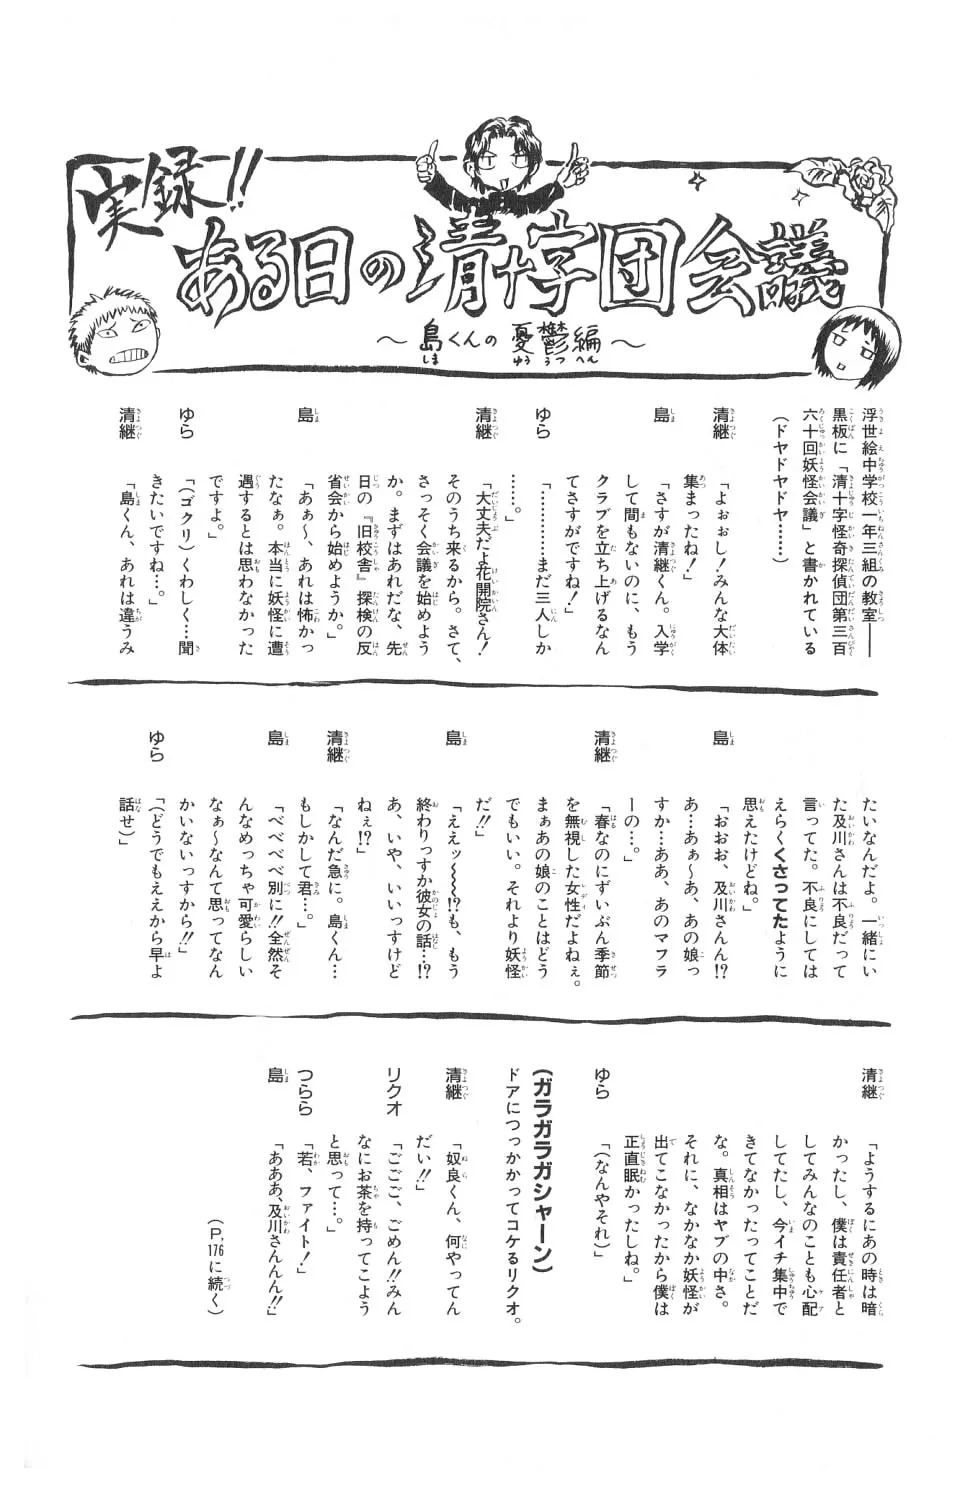 実録!!
ある日の清十字団会議
～島くんの憂鬱編～
浮世絵中学校一年三組の教室――
黒板に「清十字怪奇探偵団第三百
六十回妖怪会議」と書かれている
(ドヤドヤドヤ……)
清継 「よぉぉし!みんな大体
集まったね!」
島 「さすが清継くん。入学
して間もないのに、もう
クラブを立ち上げるなん
てさすがですね!」
ゆら 「…………まだ三人しか
……。」
清継 「大丈夫だよ花開院さん!
そのうち来るから。さて、
さっそく会議を始めよう
か。まずはあれだな、先
日の『旧校舎』探検の反
省会から始めようか。」
島 「あぁ～、あれは怖かっ
たなぁ。本当に妖怪に遭
遇するとは思わなかった
ですよ。」
ゆら 「(ゴクリ)くわしく…聞
きたいですね…。」
清継 「島くん、あれは違うみ
たいなんだよ。一緒にい
た及川さんは不良だって
言ってた。不良にしては
えらくくさってたように
思えたけどね。」
島 「おおお、及川さんん!?
あ…あぁ～あ、あの娘っ
すか…ああ、あのマフラ
ーの…。」
清継 「春なのにずいぶん季節
を無視した女性だよねぇ。
まぁあの娘のことはどう
でもいい。それより妖怪
だ!!」
島 「ええッ～～!?も、もう
終わりっすか彼女の話…!?
あ、いや、いいっすけど
ねぇ!?」
清継 「なんだ急に。島くん…
もしかして君…。」
島 「べべべべ別に!!全然そ
んなめっちゃ可愛らしい
なぁ～なんて思ってなん
かいないっすから!!」
ゆら 「(どうでもええから早よ
話せ)
清継 「ようするにあの時は暗
かったし、僕は責任者と
してみんなのことも心配
してたし、今イチ集中で
きてなかったってことだ
な。真相はヤブの中さ。
それに、なかなか妖怪が
出てこなかったから僕は
正直眠かったしね。」
ゆら 「(なんやそれ)」
(ガラガラガシャーン)
ドアにつっかかってコケるリクオ。
清継 「奴良くん、何やってん
だい!!」
リクオ 「ごごご、ごめん!!みん
なにお茶を持ってこよう
と思って…。」
つらら 「若、ファイト!」
島 「あああ、及川さんんん!!」
(P.176に続く)